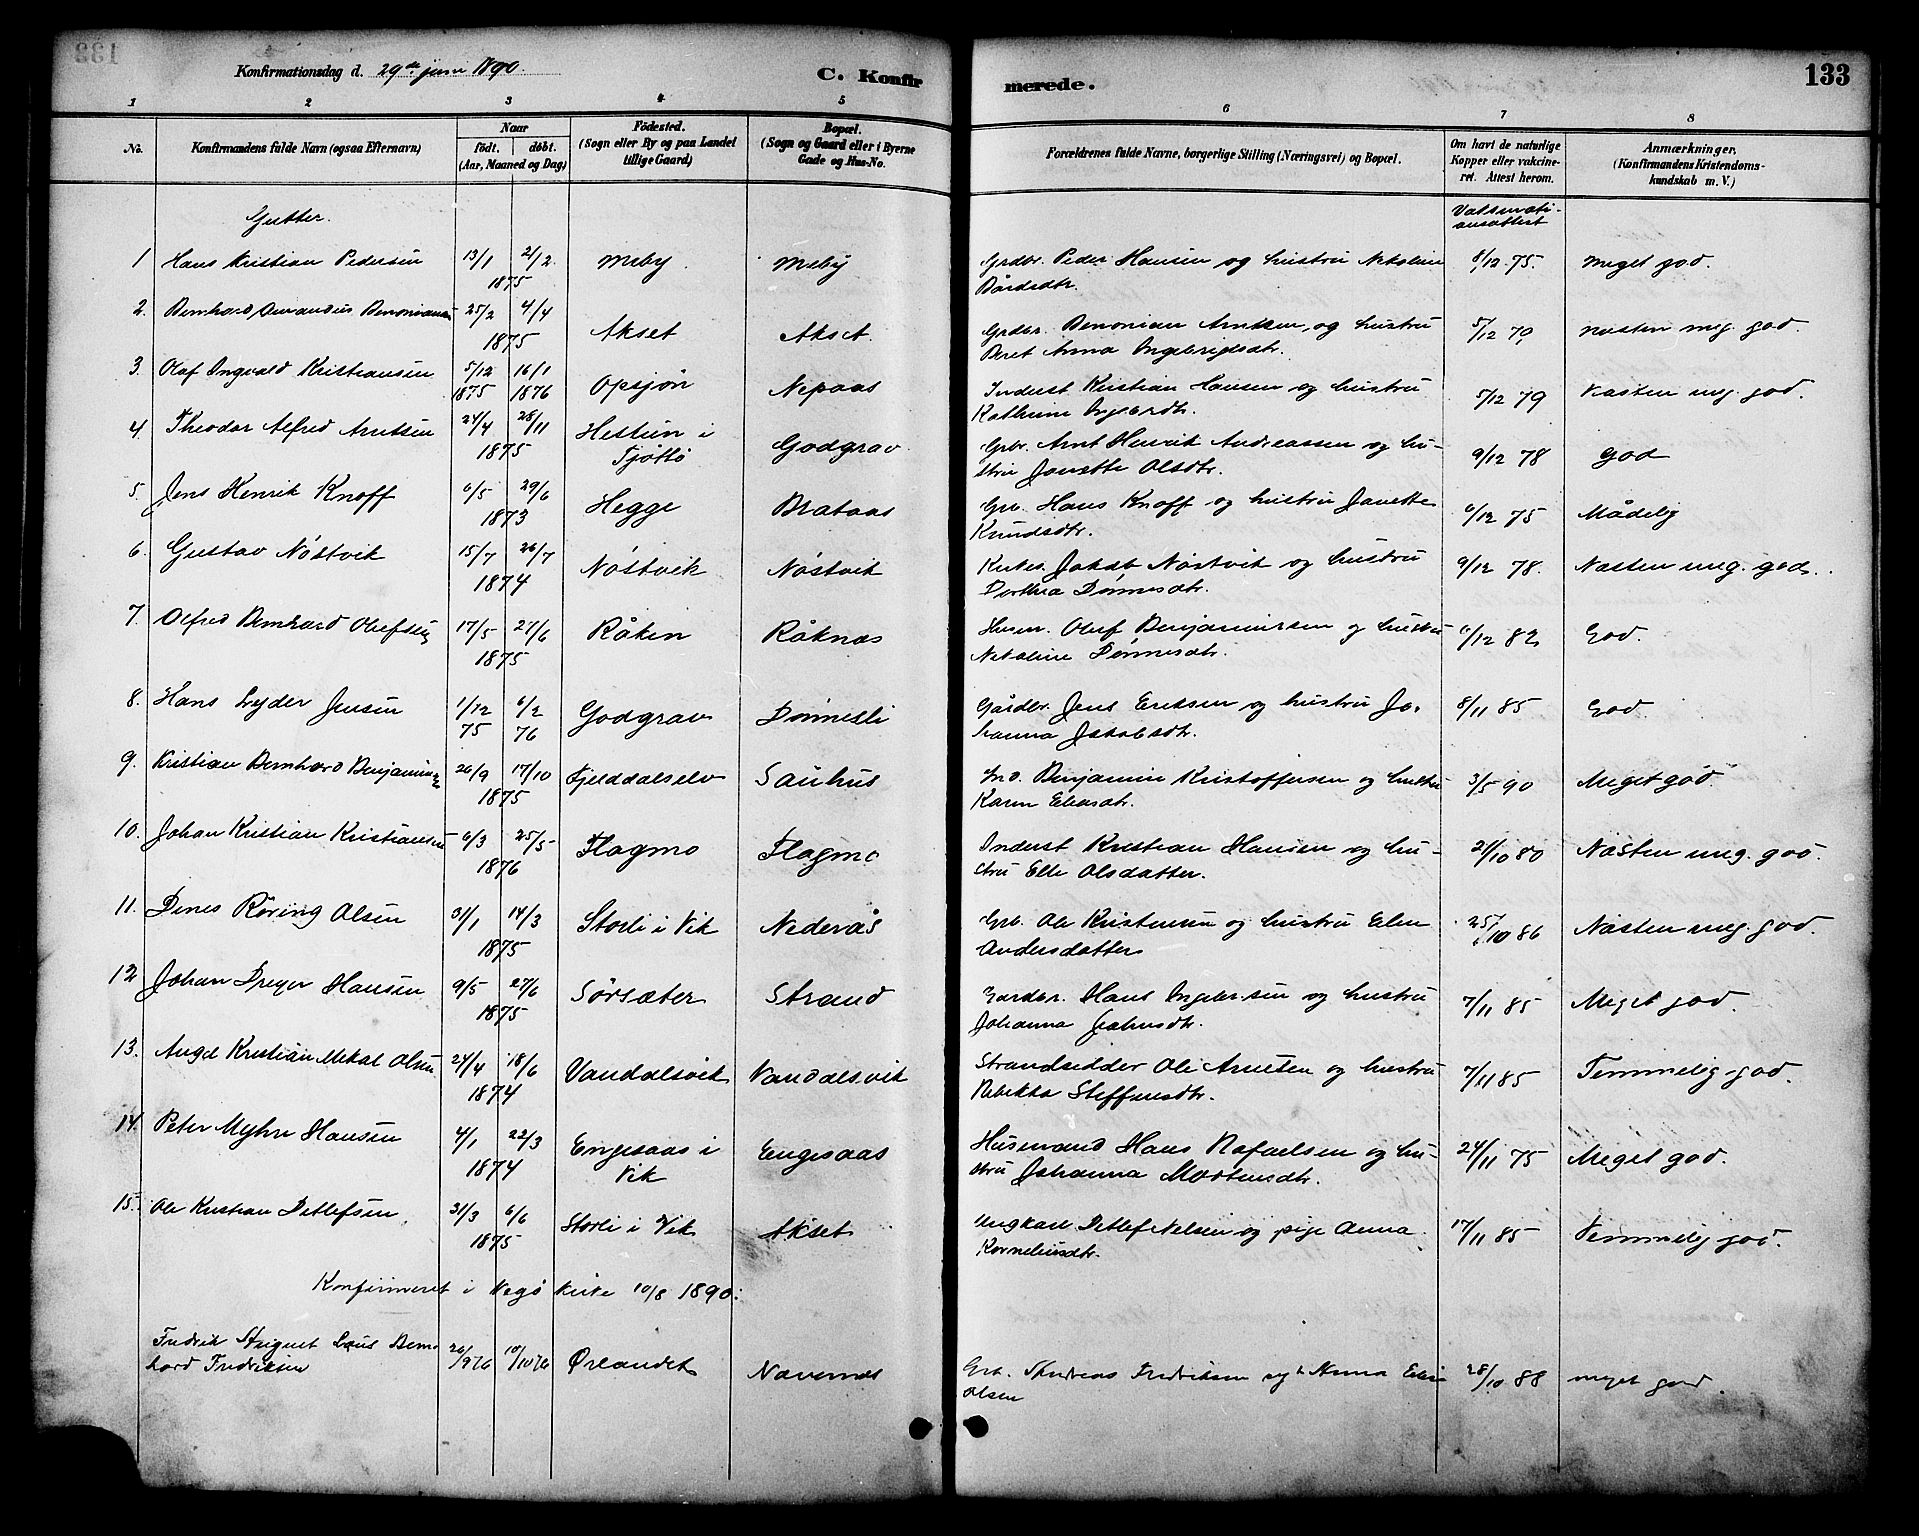 Konfirmationsdag d. 29de juni 1890.
C. Konfirmerede.
133
1 2 3 4 5 6 7 8
No.
Konfirmandens fulde Navn (ogsaa Efternavn)
Naar
født. døbt.
(Aar, Maaned og Dag)
Födested.
(Sogn eller By og paa Landet
tillige Gaard)
Bopæl.
(Sogn og Gaard eller i Byerne
Gade og Hus-No.
Forældrenes fulde Navne, borgerlige Stilling (Næringsvei) og Bopæl.
Om havt de naturlige
Kopper eller vakcine-
ret. Attest herom.
Anmærkninger,
(Konfirmandens Kristendoms-
kundskab m. V.)
Gutter.
Vaksinati-
onsattest
1 Hans Kristian Pedersen 13/1 21/2 1875 Meby Meby Grdbr. Peder Hansen og hustru Nikoline
Bårdsdtr. 8/12 75. Meget god.
2. Bernhard Benonians 25/2 4/4 1875 Akset Akset Grdbr. Benonian Arntsen og hustru
Beret Anna Ingebrigtsdtr. 5/12 79 næsten meg. god.
3. Olaf Ingvald Kristiansen 5/12 1875 16/1 1876 Opsjøn Nepaas Inderst Kristian Hansen og hustru
Kathrine 5/12 79 Næsten meg. god.
4. Theodor Alfred Arntsen 24/4 28/11 1875 Hestun i
Tjøttø Godgrav Grbr. Arnt Henrik Andreassen og hu-
stru Janette Olsdtr. 9/12 78 God
5. Jens Henrik Knoff 6/5 29/6 1873 Hegge Brataas Grb. Hans Knoff og hustru Janette
Knudsdtr. 6/12 75 Mådelig
6. Gustav Nøstvik 15/7 26/7 1874 Nøstvik Nøstvik Jakob Nøstvik og hustru
Dorthea Dønnesdtr. 9/12 78. Næsten meg. god.
7. Alfred Bernhard Olufsen 17/5 27/6 1875 Råken Råknes Husm. Oluf Benjaminsen og hustru
Nikoline Dønnesdtr. 6/12 82 God.
8. Hans Lyder Jensen 1/12 75 6/2 76 Godgrav Dønnesli Gårdbr. Jens Eriksen og hustru Jo-
hanna Jakobsdtr. 8/11 85 God
9. Kristian Bernhard Benjaminsen 26/9 17/10 1875 Fjelddalselv Sauhus Ind. Benjamin Kristoffersen og hustru
Karen Eliasdtr. 3/5 90 Meget god.
10. Johan Kristian Kristiansen 6/3 25/5 1876 Flagmo Flagmo Inderst Kristian Hansen og hu-
stru Elle Olsdatter. 21/10 80 Næsten meg. god.
11. Dines Røring Olsen 31/1 14/3 1875 Storli i Vik Nederås Grb. Ole Kristensen og hustru Elen
Andersdatter 25/10 86 Næsten meg. god.
12 Johan Dreyer Hansen 9/5 27/6 1875 Sørsæter Strand Gardbr. Hans Ingebrigtsen og hustru
Johanna Johnsdtr. 7/11 85 Meget god.
13. Angel Kristian Mikal Olsen 24/4 18/6 1874 Vandalsvik Vandalsvik Strandsidder Ole Arntsen og hustru
Rebekka Steffensdtr. 7/11 85 Temmelig god.
14. Peter Myhre Hansen 4/1 22/3 1874 Engesaas i
Vik Engesaas Husmand Hans Rafaelsen og hu-
stru Johanna Mortensdtr. 24/11 75 Meget god.
15. Ole Kristian Detlefsen 31/3 6/6 1875 Storli i Vik Akset Ungkarl Detlef Nilsen og pige Anna
Korneliusdtr. 17/11 85 Temmelig god.
Konfirmeret i Vegø kirke 10/8 1890.
Fredrik Bern-
hard Fredriksen 26/9 76 10/10 76 Ørlandet Navernes Grb. Andreas Fredriksen og h. Anna
Olsen 28/10 88 meget god.